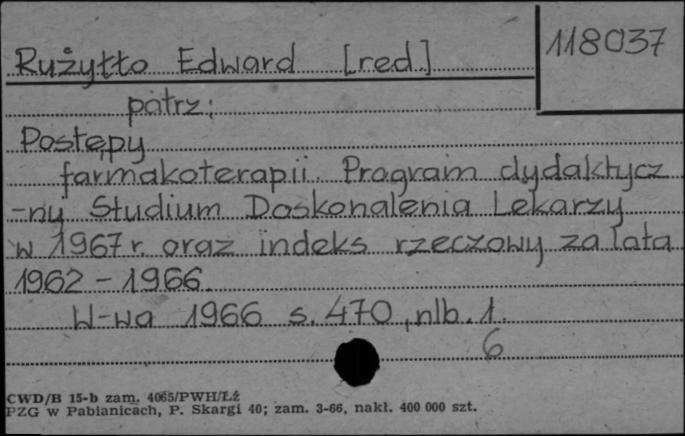 118037
Rużyłło Edward [red.]
patrz:
Postępy
farmakoterapii. Program dydaktycz
-ny Studium Doskonalenia Lekarzy
w 1967 r. oraz indeks rzeczowy za lata
1962-1966.
W-wa 1966 s. 470, nlb. 1.
6
CWD/B 15-b zam. 4065/PWH/Łż
PZG w Pabianicach, P. Skargi 40; zam. 3-66, nakł. 400 000 szt.